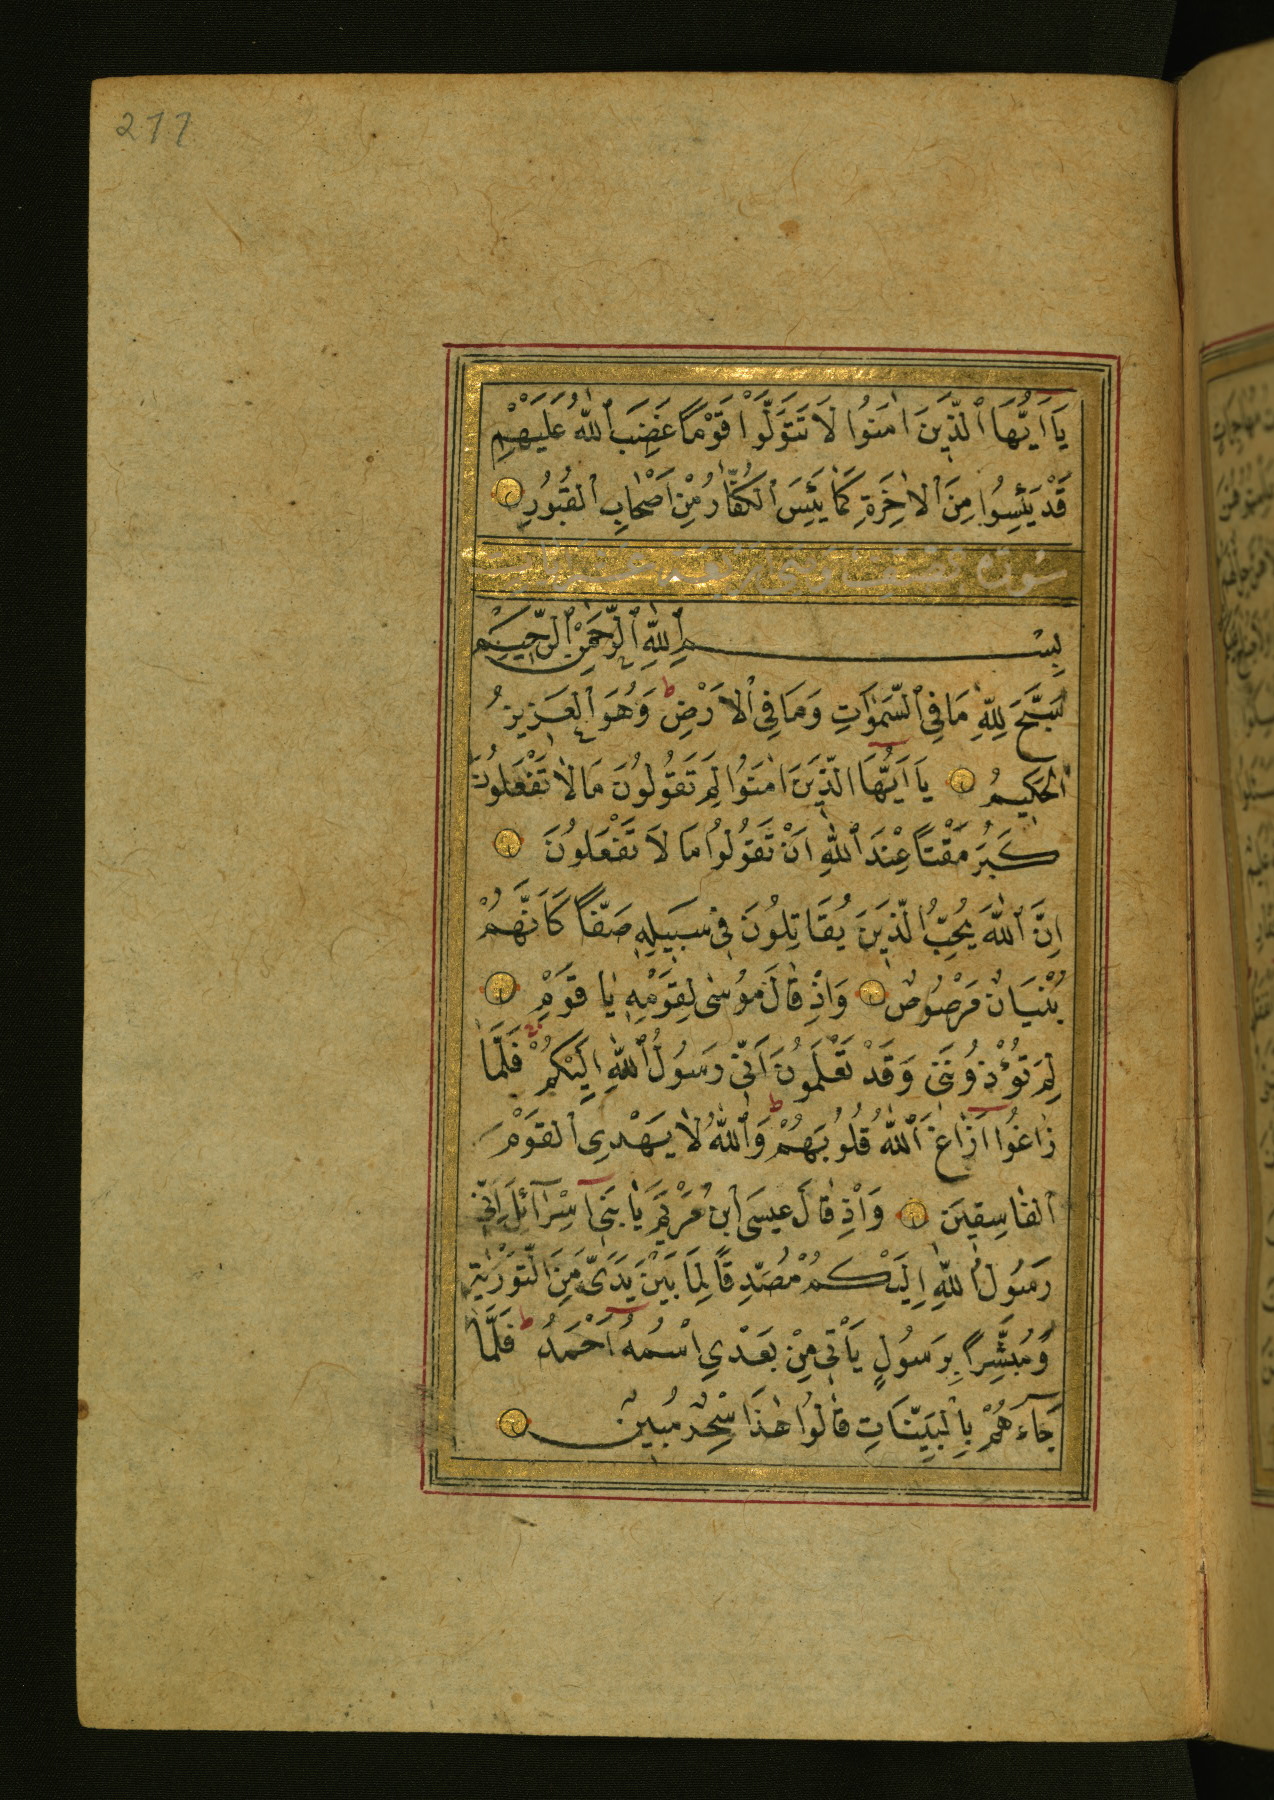 277
يَا اَيُّهَا الَّذِينَ اٰمَنُوا لَا تَتَوَلَّوْا قَوْمًا غَضِبَ اللّٰهُ عَلَيْهِمْ
قَدْ يَئِسُوا مِنَ الْاٰخِرَةِ كَمَا يَئِسَ الْكُفَّارُ مِنْ اَصْحَابِ الْقُبُورِ
سورة
بِسْمِ اللّٰهِ الرَّحْمٰنِ الرَّحِيمِ
سَبَّحَ لِلّٰهِ مَا فِي السَّمٰوَاتِ وَمَا فِي الْاَرْضِ ط وَهُوَ الْعَزِيزُ
الْحَكِيمُ يَا اَيُّهَا الَّذِينَ اٰمَنُوا لِمَ تَقُولُونَ مَا لَا تَفْعَلُونَ
كَبُرَ مَقْتًا عِنْدَ اللّٰهِ اَنْ تَقُولُوا مَا لَا تَفْعَلُونَ
اِنَّ اللّٰهَ يُحِبُّ الَّذِينَ يُقَاتِلُونَ فِي سَبِيلِهِ صَفًّا كَاَنَّهُمْ
بُنْيَانٌ مَرْصُوصٌ وَاِذْ قَالَ مُوسٰى لِقَوْمِهِ يَا قَوْمِ
لِمَ تُؤْذُونَنِي وَقَدْ تَعْلَمُونَ اَنِّي رَسُولُ اللّٰهِ اِلَيْكُمْ فَلَمَّا
زَاغُوا اَزَاغَ اللّٰهُ قُلُوبَهُمْ ط وَاللّٰهُ لَا يَهْدِي الْقَوْمَ
الْفَاسِقِينَ وَاِذْ قَالَ عِيسَى ابْنُ مَرْيَمَ يَا بَنِي اِسْرَآئِلَ اِنِّي
رَسُولُ اللّٰهِ اِلَيْكُمْ مُصَدِّقًا لِمَا بَيْنَ يَدَيَّ مِنَ التَّوْرٰيةِ
وَمُبَشِّرًا بِرَسُولٍ يَأْتِي مِنْ بَعْدِي اسْمُهُ اَحْمَدُ ط فَلَمَّا
جَآءَهُمْ بِالْبَيِّنَاتِ قَالُوا هٰذَا سِحْرٌ مُبِينٌ